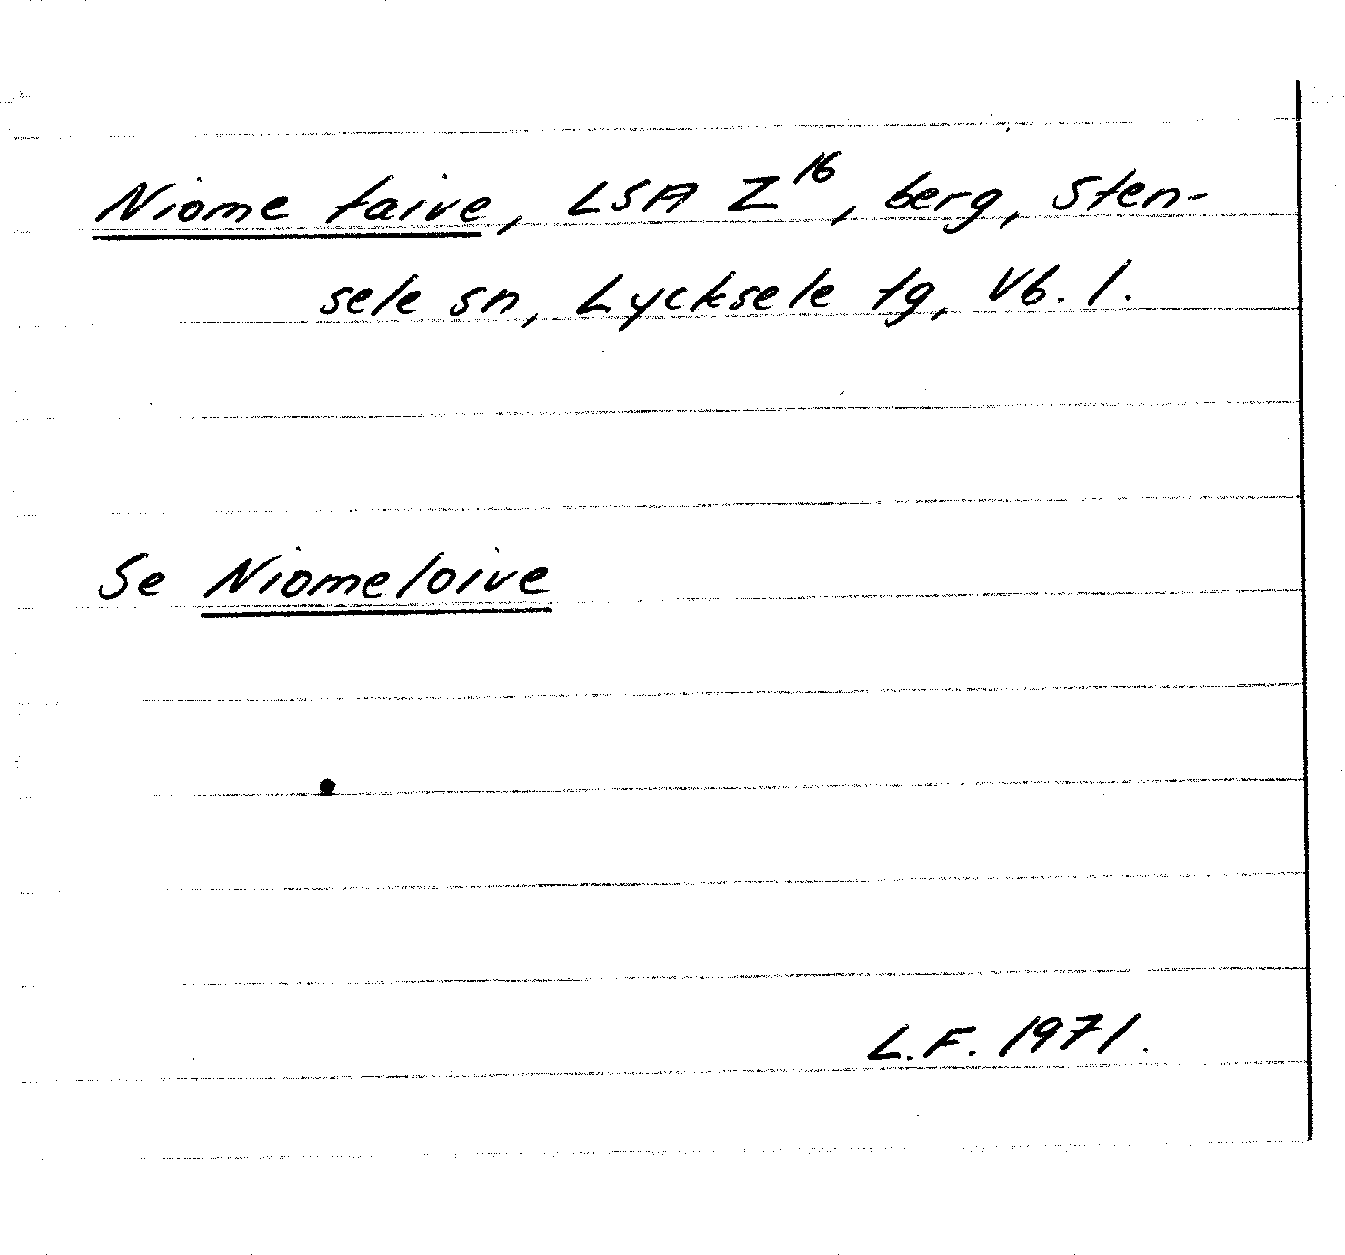 Niome taive, LSA Z¹⁶, berg, Sten-
sele sn, Lycksele tg, Vb. l.
Se Niomeloive
L.F. 1971.